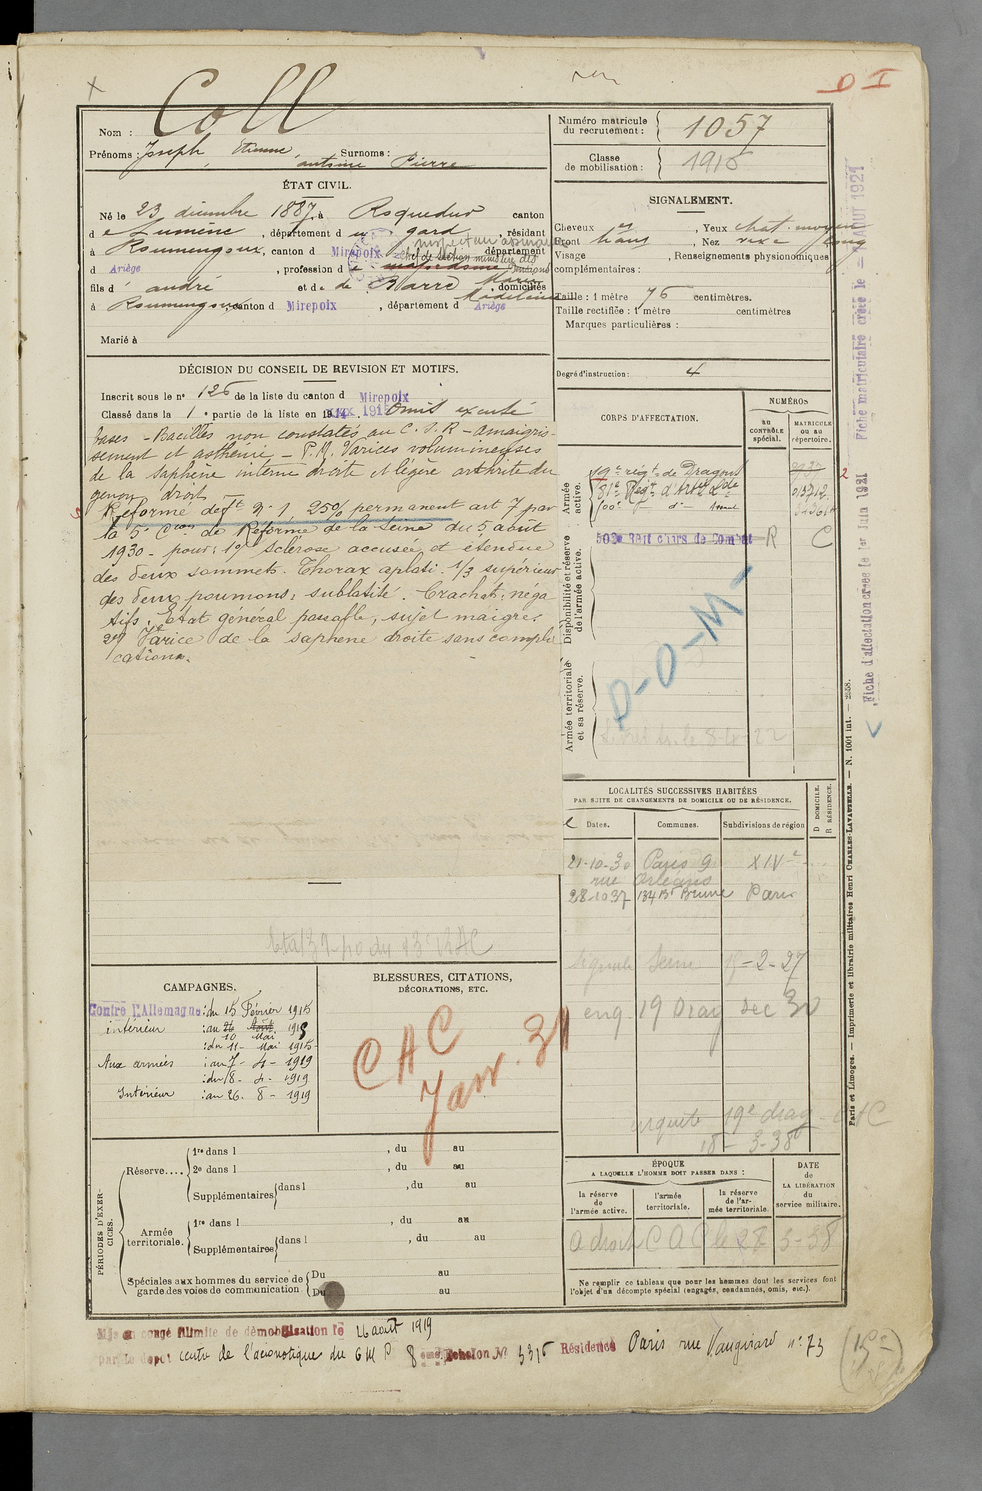 D I
Coll
Nom :
Prénoms : Joseph, Etienne, Surnoms :
antoine Pierre
Numéro matricule
du recrutement :
1057
Classe
de mobilisation :
1915
ÉTAT CIVIL.
Né le 23 décembre 1887, à Roquedur canton
d e Sumène, département d u gard, résidant
à Roumengoux, canton d Mirepoix, département
d Ariège, profession d e majordome
fils d' andré et d e de Barre Marie, domiciliés
Madeleine
à Roumengoux, canton d Mirepoix, département d Ariège
Marié à
SIGNALEMENT.
Cheveux, Yeux chat. moyen
Front, Nez long
Visage, Renseignements physionomiques
complémentaires :
Taille : 1 mètre 76 centimètres.
Taille rectifiée : 1 mètre centimètres
Marques particulières :
Degré d'instruction : 4
DÉCISION DU CONSEIL DE REVISION ET MOTIFS.
Inscrit sous le n° 126 de la liste du canton d Mirepoix
Classé dans la 1 e partie de la liste en 1915 Omis excusé
bases - Bacilles non constatés au C.S.R - Amaigris-
sement et asthénie - P.M. Varices volumineuses
de la saphène interne droite et légère arthrite du
genou droit
Réformé déft n° 1, 25% permanent art 7 par
la 5e Cion de Réforme de la Seine du 5 août
1930 - pour : 1° sclérose accusée et étendue
des deux sommets. Thorax aplati. 1/3 supérieur
des deux poumons, submatité. Crachats néga
tifs, état général passable, sujet maigre.
2° Varice de la saphène droite sans compli
cations.
CORPS D'AFFECTATION.
NUMÉROS
au
CONTRÔLE
spécial.
MATRICULE
ou au
répertoire.
Armée
active.
19e régt de Dragons
81e Régt d'Artie Lde
500e
Disponibilité et réserve
de l'armée active.
502e Régt chars de Combat R C
Armée territoriale
et sa réserve.
D-O-M-
LOCALITÉS SUCCESSIVES HABITÉES
PAR SUITE DE CHANGEMENTS DE DOMICILE OU DE RÉSIDENCE.
Dates. Communes. Subdivisions de région
D DOMICILE.
R RÉSIDENCE.
21-10-30 Paris 9 XIVe
rue Orléans
28-10-37 134 Bd Brune Paris
Seine 15-2-27
enq. 19 Drag dec 30
19e drag CAC
18-3-38
CAMPAGNES.
Contre l'Allemagne : du 15 Février 1915
intérieur : au 10 Mai 1915
: du 11 - Mai 1915-
Aux armées : au 7 - 4 - 1919
: du 8 - 4 - 1919
Intérieur : au 26. 8 - 1919
BLESSURES, CITATIONS,
DÉCORATIONS, ETC.
CAC
Janv. 31
PÉRIODES D'EXER-
CICES.
Réserve.... 1re dans l, du au
2e dans l, du au
Supplémentaires dans l, du au
Armée
territoriale. 1re dans l, du au
Supplémentaires dans l, du au
Spéciales aux hommes du service de
garde des voies de communication Du au
Du au
ÉPOQUE
A LAQUELLE L'HOMME DOIT PASSER DANS :
la réserve
de
l'armée active.
l'armée
territoriale.
la réserve
de l'ar-
mée territoriale.
DATE
de
LA LIBÉRATION
du
service militaire.
A droit CAC le 28 3-38
Ne remplir ce tableau que pour les hommes dont les services font
l'objet d'un décompte spécial (engagés, condamnés, omis, etc.).
Mis en congé illimité de démobilisation le 26 août 1919
par le dépôt centre de l'aéronautique du GMP 8 eme Echelon N° 5315 Résidence Paris rue Vaugirard n° 73
(15e)
Fiche matriculaire créée le AOUT 1921
Fiche d'affectation créée le 1er Juin 1921
Paris et Limoges. — Imprimerie et librairie militaires Henri CHARLES-LAVAUZELLE. — N. 1001 int. — 2558.